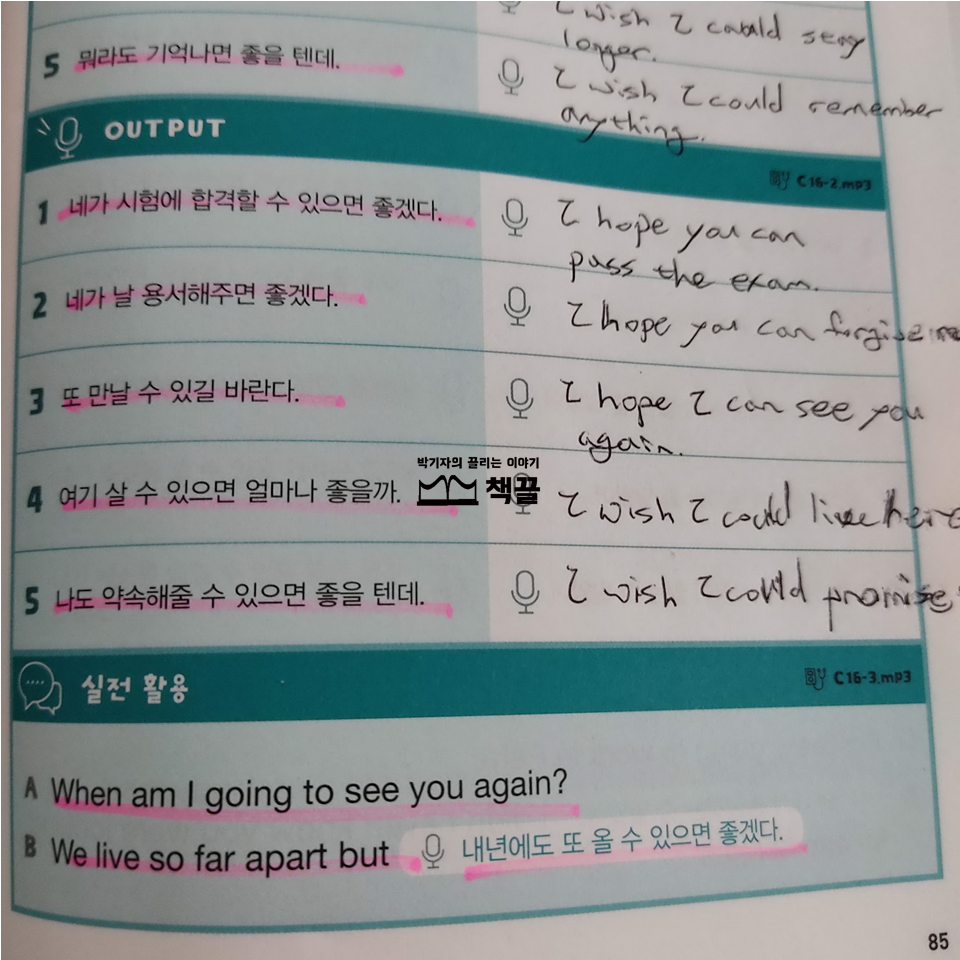 I wish I could stay
longer.
5 뭐라도 기억나면 좋을 텐데.
I wish I could remember
anything.
OUTPUT
C16-2.mp3
1 네가 시험에 합격할 수 있으면 좋겠다.
I hope you can
pass the exam.
2 네가 날 용서해주면 좋겠다.
I hope you can forgive me
3 또 만날 수 있길 바란다.
I hope I can see you
again.
박기자의 끌리는 이야기
책끌
4 여기 살 수 있으면 얼마나 좋을까.
I wish I could live here
5 나도 약속해줄 수 있으면 좋을 텐데.
I wish I could promise
실전 활용
C16-3.mp3
A When am I going to see you again?
B We live so far apart but 내년에도 또 올 수 있으면 좋겠다.
85